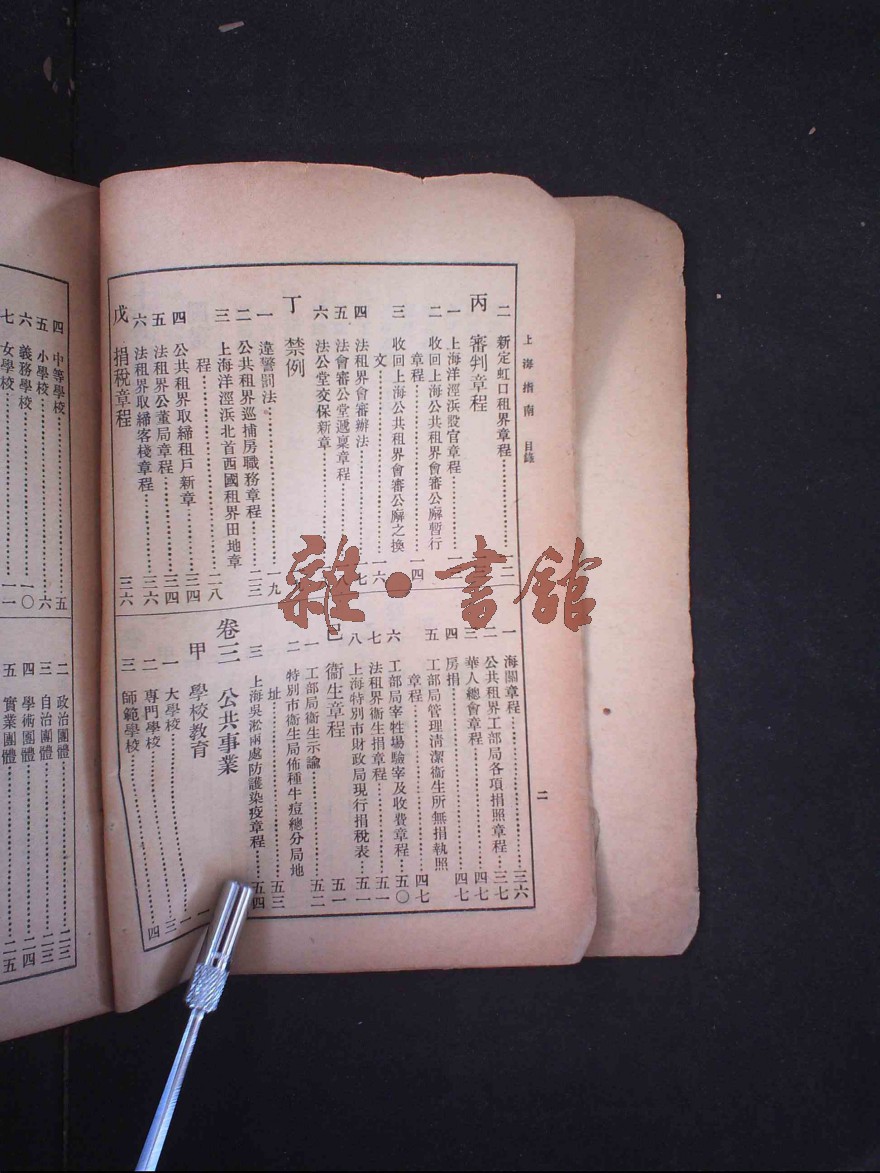 上海指南 目錄
二
二 新定虹口租界章程
丙 審判章程
一 上海洋涇浜設官章程
二 收回上海公共租界會審公廨暫行
章程 一四
三 收回上海公共租界會審公廨之換
文 一六
四 法租界會審辦法
五 法會審公堂遞稟章程
六 法公堂交保新章
丁 禁例
一 違警罰法 一九
二 公共租界巡捕房職務章程 二三
三 上海洋涇浜北首西國租界田地章
程 二八
四 公共租界取締租戶新章 三四
五 法租界公董局章程 三四
六 法租界取締客棧章程 三六
戊 捐稅章程 三六
一 海關章程 三六
二 公共租界工部局各項捐照章程 三七
三 華人總會章程 四七
四 房捐 四七
五 工部局管理清潔衞生所無捐執照
章程 四七
六 工部局宰牲場驗宰及收費章程 五〇
七 法租界衞生捐章程 五一
八 上海特別市財政局現行捐稅表 五一
己 衞生章程
一 工部局衞生示諭 五二
二 特別市衞生局佈種牛痘總分局地
址 五三
三 上海吳淞兩處防護染疫章程 五四
卷三 公共事業
甲 學校教育 一
一 大學校 一
二 專門學校 三
三 師範學校 四
四 中等學校 五
五 小學校 六
六 義務學校 一〇
七 女學校 一一
二 政治團體 二三
三 自治團體 二三
四 學術團體 二四
五 實業團體 二五
雜·書館